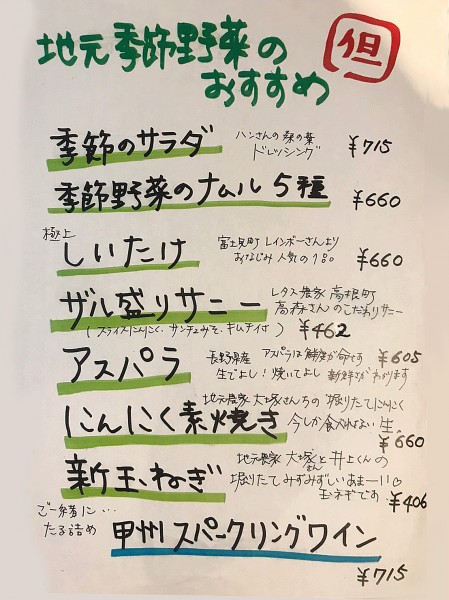 地元季節野菜の
おすすめ
但
季節のサラダ
ハンさんの桑の葉
ドレッシング
¥715
季節野菜のナムル5種
¥660
極上
しいたけ
富士見町 レインボーさんより
おなじみ人気の
¥660
ザル盛りサニー
レタス農家 高根町
高森さんのこだわりサニー
(スライスにんにく、サンチュみそ、キムチ付)
¥462
アスパラ
長野県産 アスパラは鮮度が命です
生でよし!焼いてよし 新鮮さがわかります
¥605
にんにく素焼き
地元農家 大塚さんちの掘りたてにんにく
今しか食べれない生。
¥660
新玉ねぎ
地元農家 大塚さんと井上くんの
掘りたてみずみずしいあまーい♡
玉ネギです
¥406
ご一緒に…
たる詰め
甲州スパークリングワイン
¥715